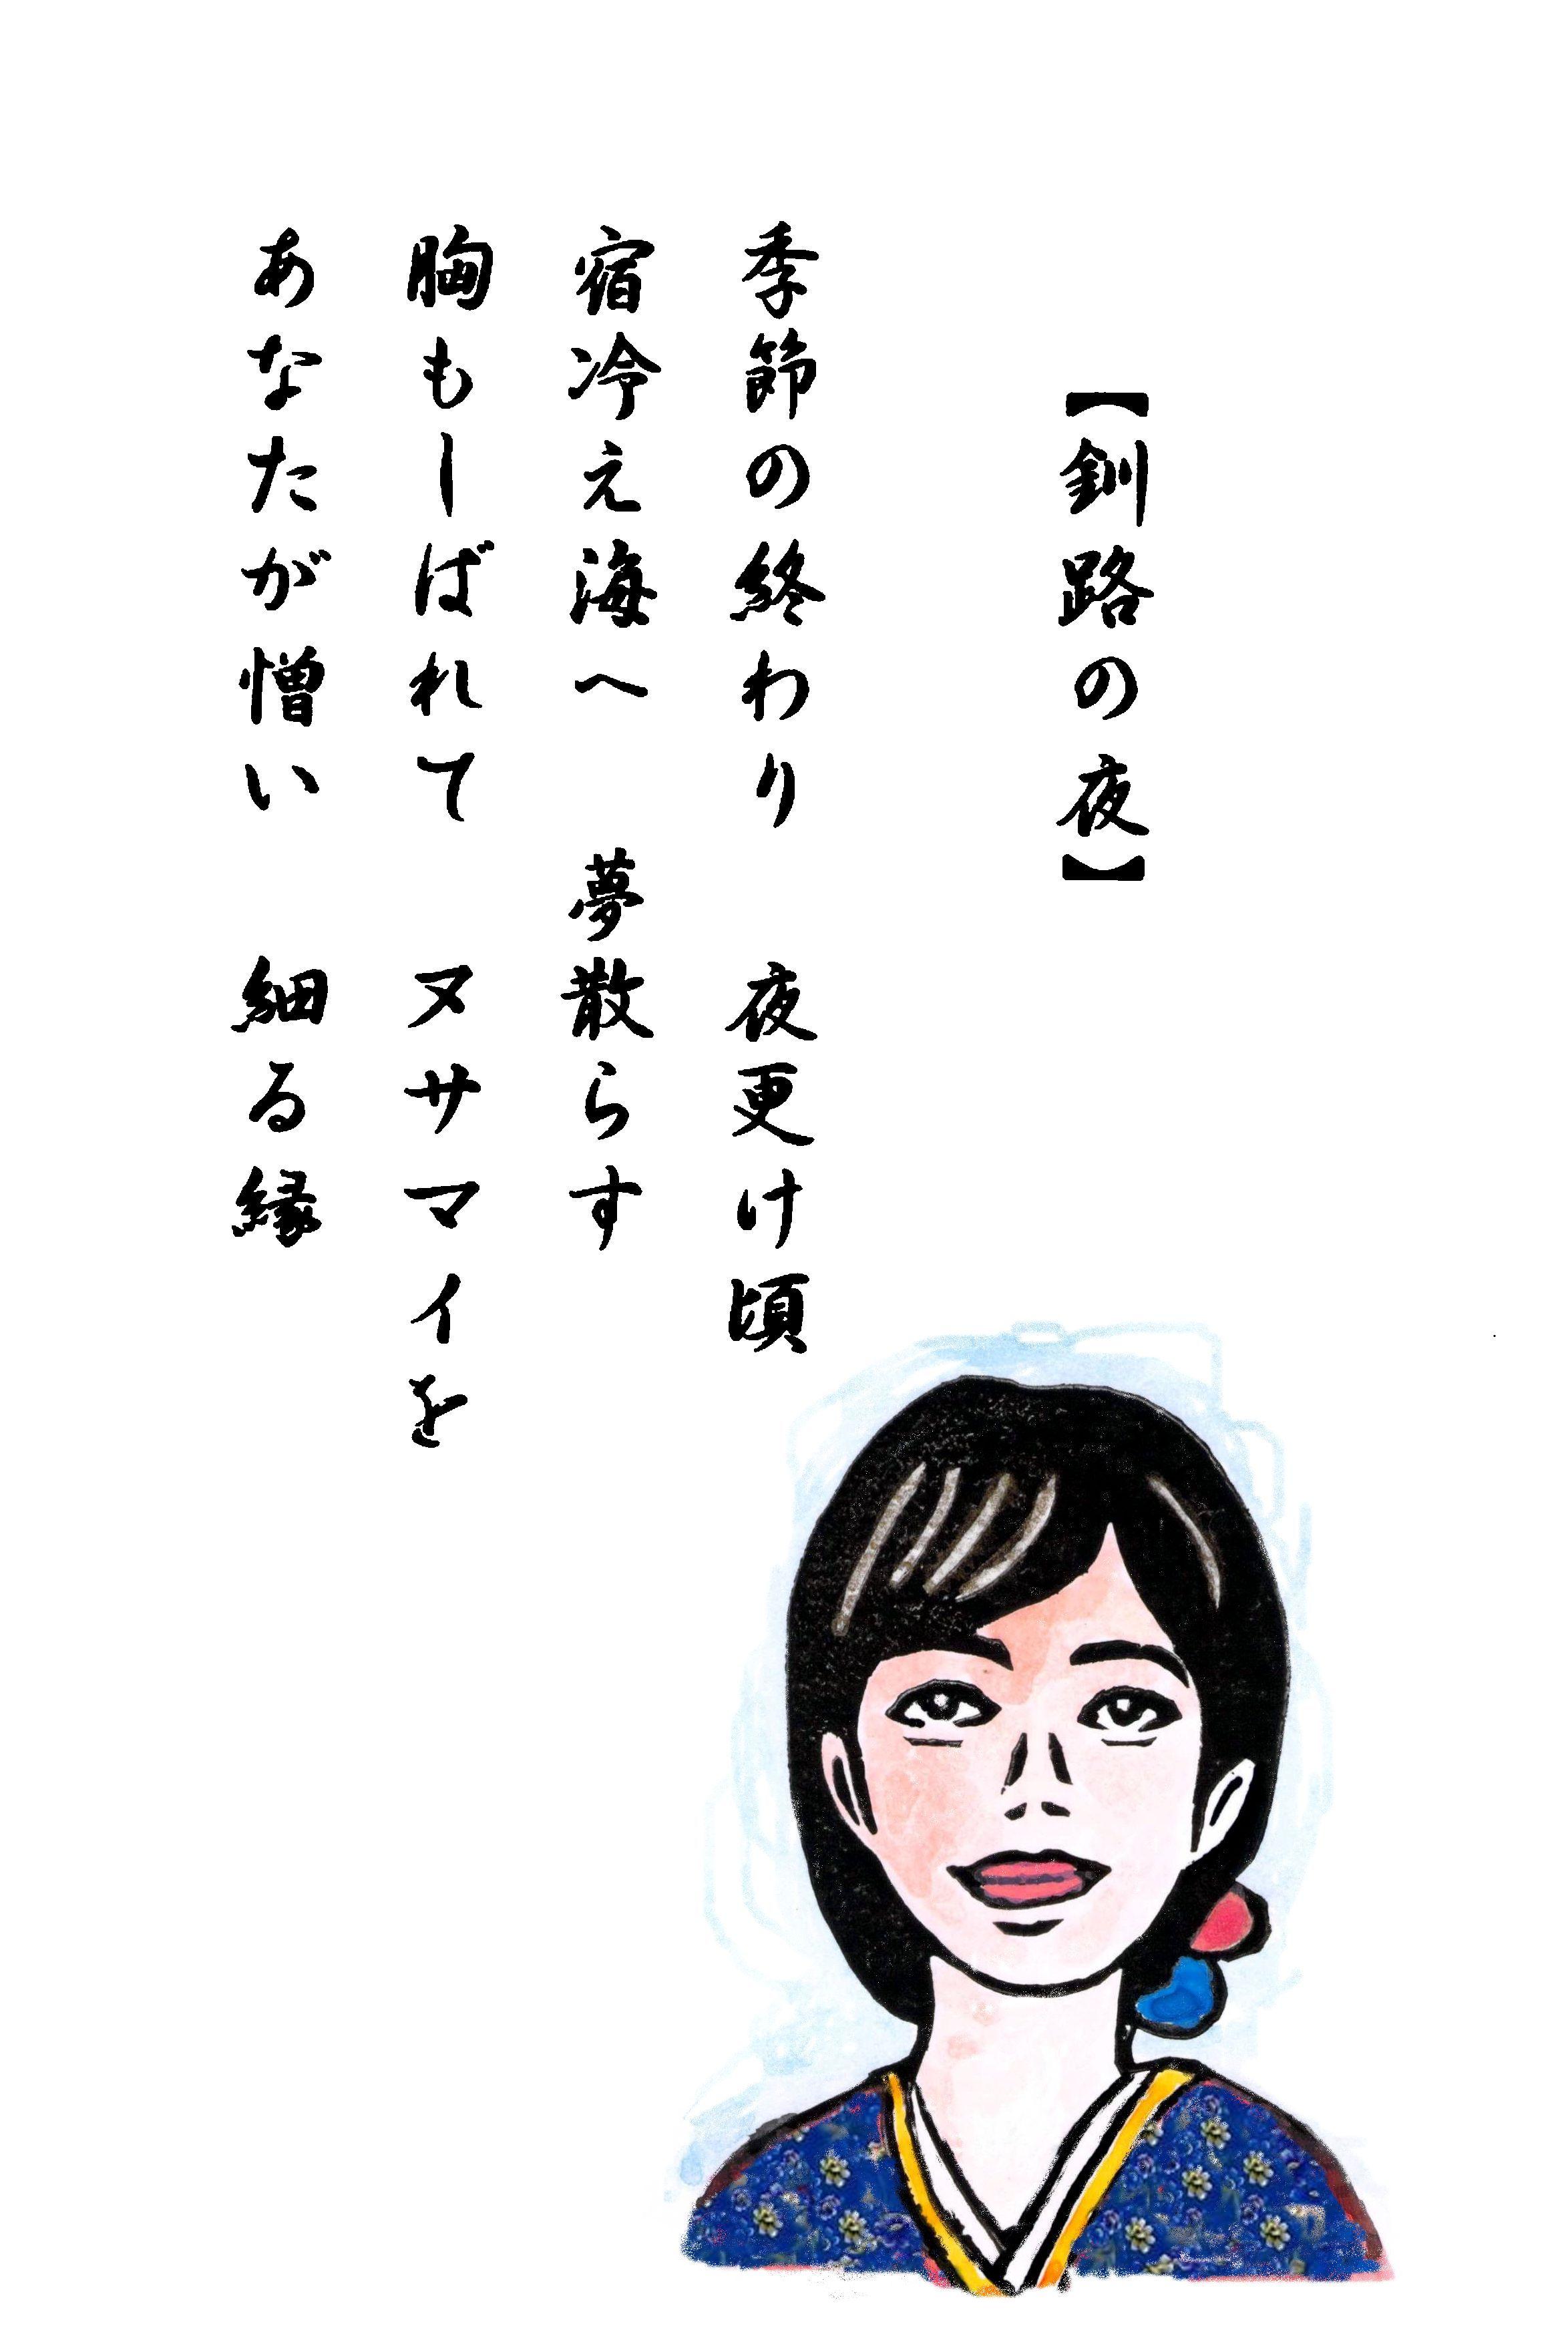 【釧路の夜】
季節の終わり　夜更け頃
宿冷え海へ　夢散らす
胸もしばれて　ヌサマイを
あなたが憎い　細る縁